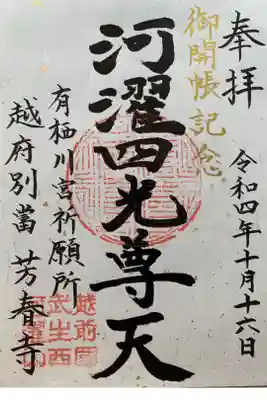 奉拝
令和四年十月十六日
御開帳記念
河濯四光尊天
有栖川宮祈願所
越府別當 芳春寺
越前国
武生西